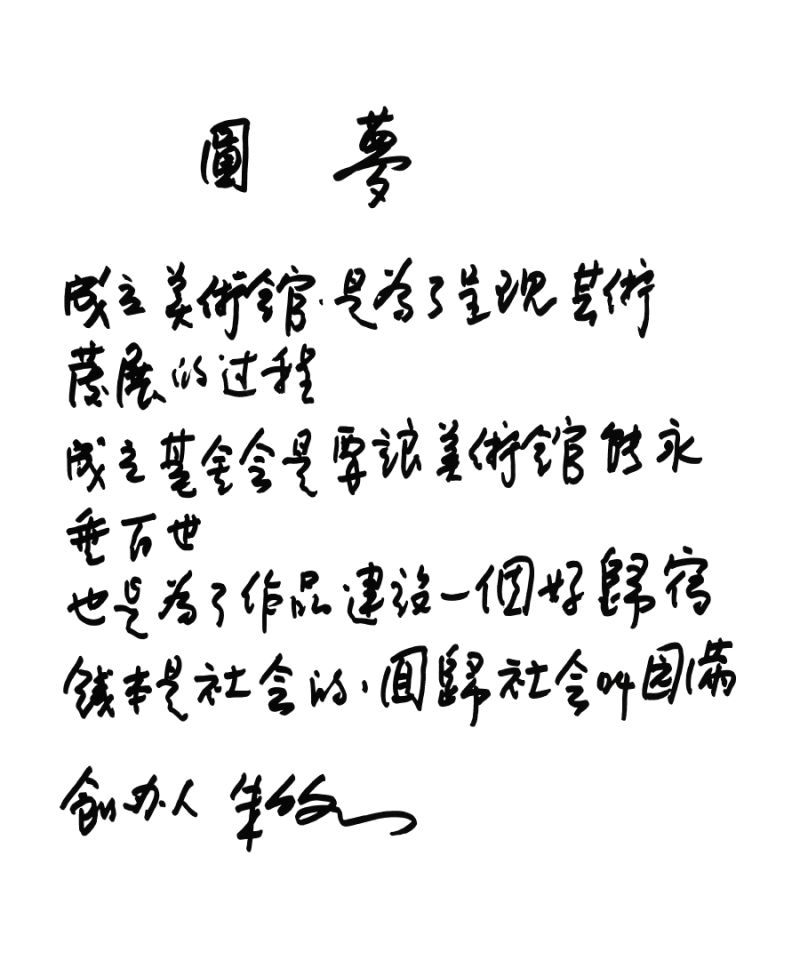 圓 夢
成立美術館，是為了呈现芸術
發展的过程
成立基金会是要讓美術館能永
垂百世
也是為了作品建设一個好歸宿
錢本是社会的，回歸社会叫圆满
創办人 朱